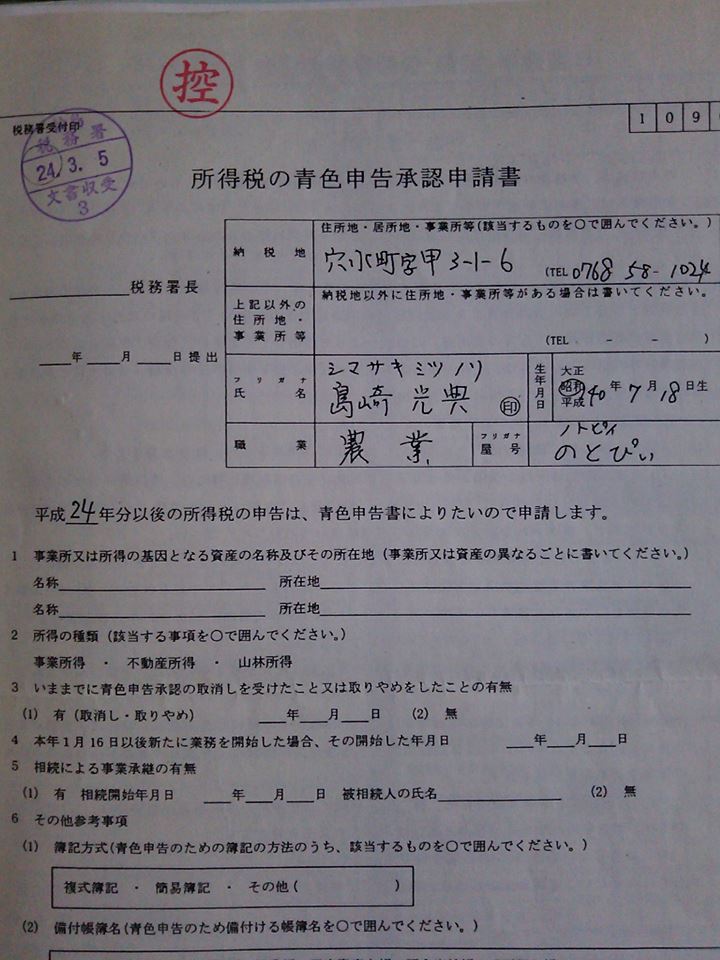 控
1 0 9
税務署受付印
税務署
24.3.5
文書収受
3
所得税の青色申告承認申請書
納税地
住所地・居所地・事業所等(該当するものを○で囲んでください。)
穴水町字甲3-1-6
(TEL 0768 58-1024
税務署長
上記以外の住所地・事業所等
納税地以外に住所地・事業所等がある場合は書いてください。
(TEL - - )
年 月 日提出
フリガナ
シマサキミツノリ
氏名
島崎光典 ㊞
生年月日
大正
昭和
平成
40年7月18日生
職業
農業
フリガナ
ノトピィ
屋号
のとぴぃ
平成24年分以後の所得税の申告は、青色申告書によりたいので申請します。
1 事業所又は所得の基因となる資産の名称及びその所在地(事業所又は資産の異なるごとに書いてください。)
名称 所在地
名称 所在地
2 所得の種類(該当する事項を○で囲んでください。)
事業所得 ・ 不動産所得 ・ 山林所得
3 いままでに青色申告承認の取消しを受けたこと又は取りやめをしたことの有無
(1) 有(取消し・取りやめ) 年 月 日 (2) 無
4 本年1月16日以後新たに業務を開始した場合、その開始した年月日 年 月 日
5 相続による事業承継の有無
(1) 有 相続開始年月日 年 月 日 被相続人の氏名 (2) 無
6 その他参考事項
(1) 簿記方式(青色申告のための簿記の方法のうち、該当するものを○で囲んでください。)
複式簿記 ・ 簡易簿記 ・ その他( )
(2) 備付帳簿名(青色申告のため備付ける帳簿名を○で囲んでください。)